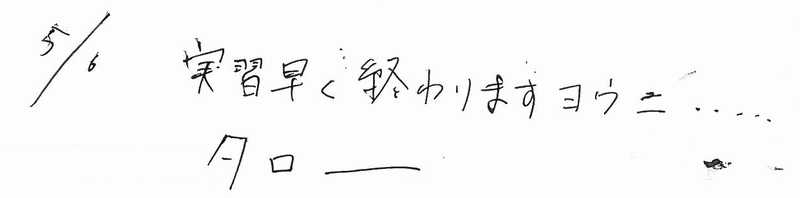 5/6 実習早く終わりますヨウニ.....
タロー